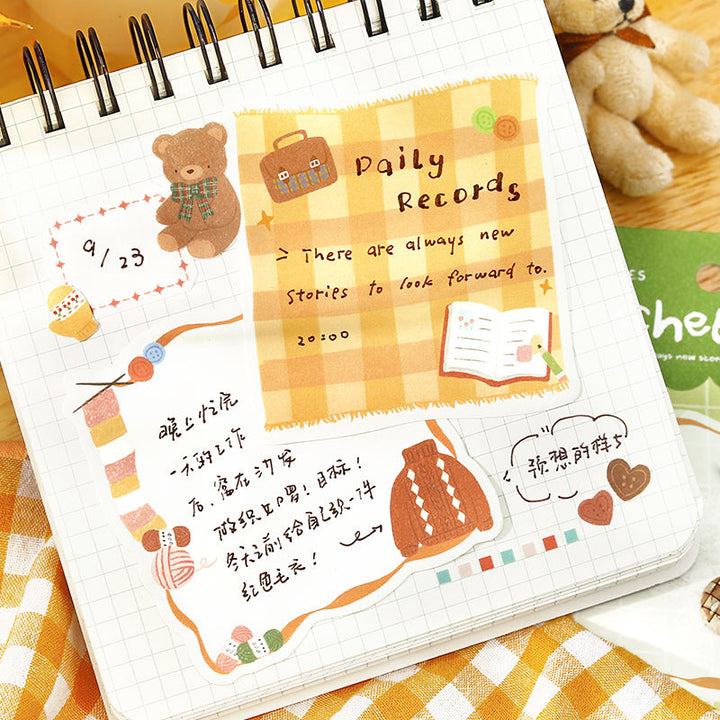 9/23
Daily
Records
> There are always new
stories to look forward to.
20:00
晚上忙完
一天的工作
后,窝在沙发
做织女啰!目标!
冬天之前给自己织一件
红色毛衣!
预想的样子
ES
chel
ays new stor